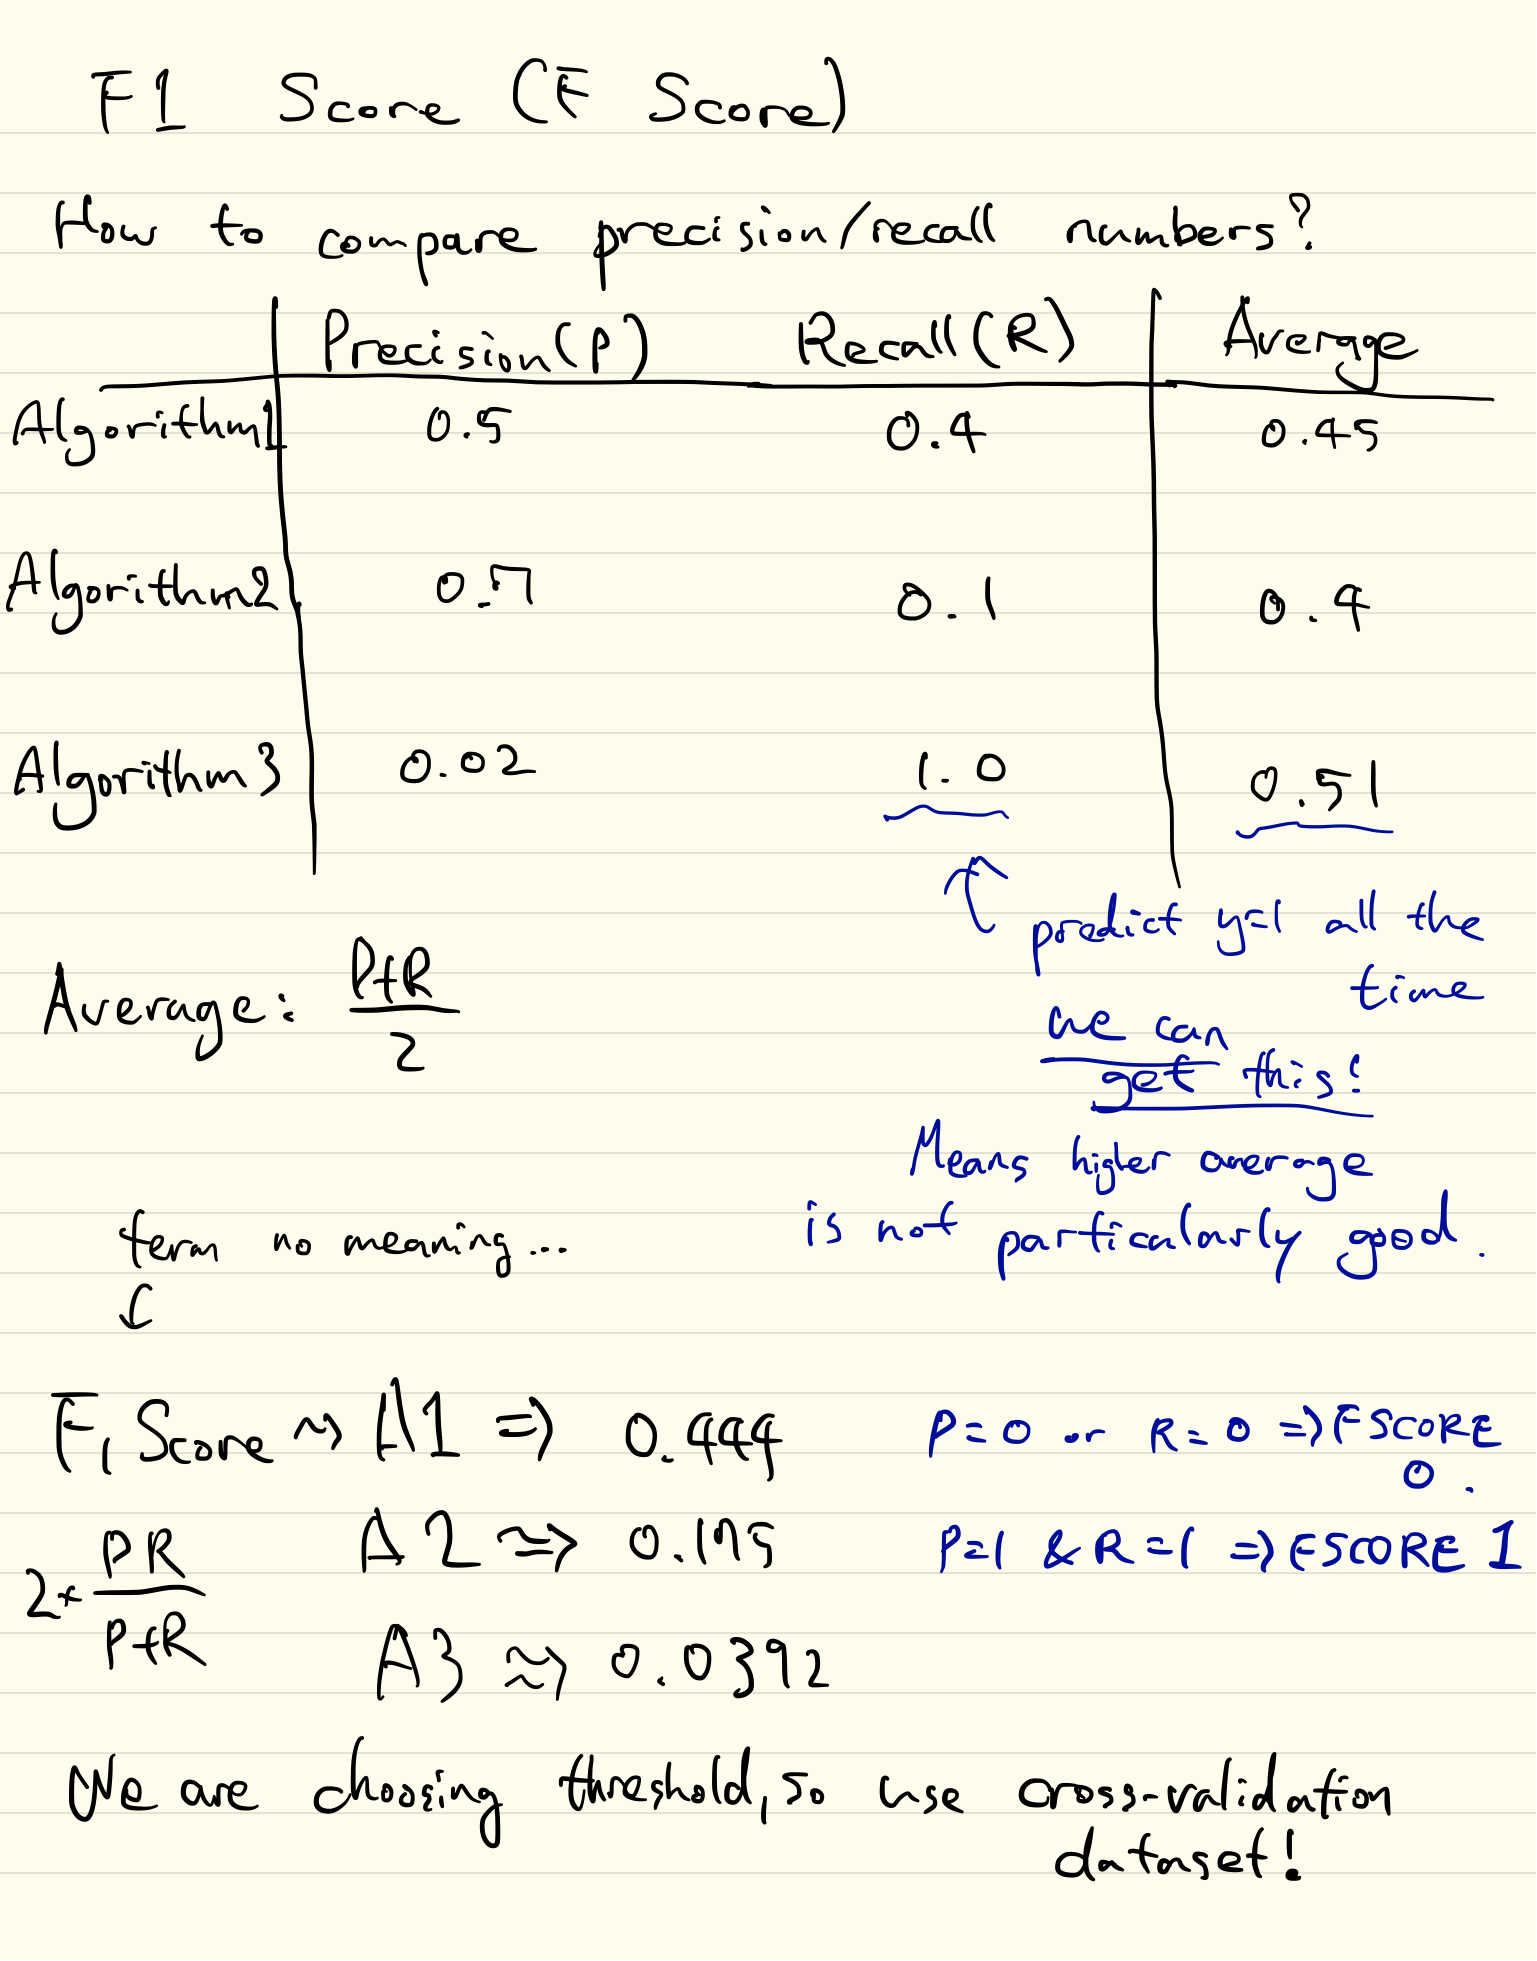 F1 Score (F Score)
How to compare precision/recall numbers?
Precision(P) Recall(R) Average
Algorithm1 0.5 0.4 0.45
Algorithm2 0.7 0.1 0.4
Algorithm3 0.02 1.0 0.51
predict y=1 all the
time
Average: P+R
2
we can
get this!
Means higher average
is not particularly good.
term no meaning...
F1 Score ~> A1 => 0.444
P=0 or R=0 => F SCORE
0.
2* PR
P+R
A2 ≈> 0.175
P=1 & R=1 => F SCORE 1
A3 ≈> 0.0392
We are choosing threshold, so use cross-validation
dataset!